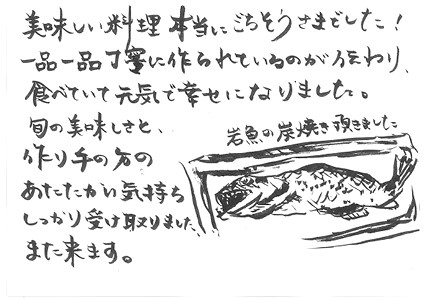 美味しい料理本当にごちそうさまでした！
一品一品丁寧に作られているのが伝わり、
食べていて元気で幸せになりました。
旬の美味しさと、
作り手の方の
あたたかい気持ち
しっかり受け取りました
また来ます。
岩魚の炭焼き頂きました